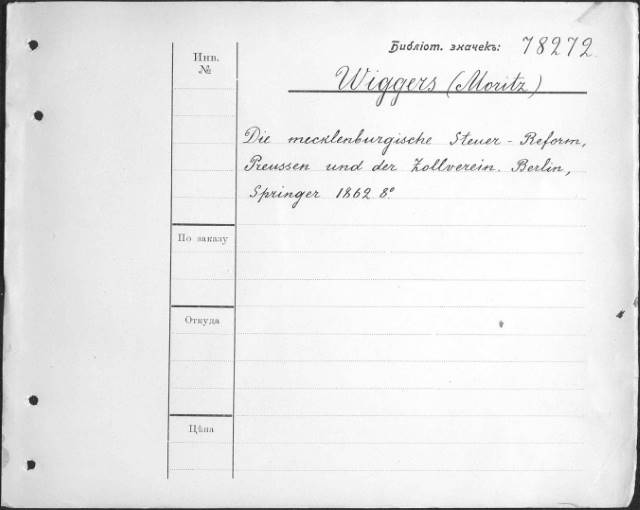 Библіот. значекъ: 78272.
Инв.
№
Wiggers (Moritz)
Die mecklenburgische Steuer-Reform,
Preussen und der Zollverein. Berlin,
Springer 1862 8º
По заказу
Откуда
Цѣна